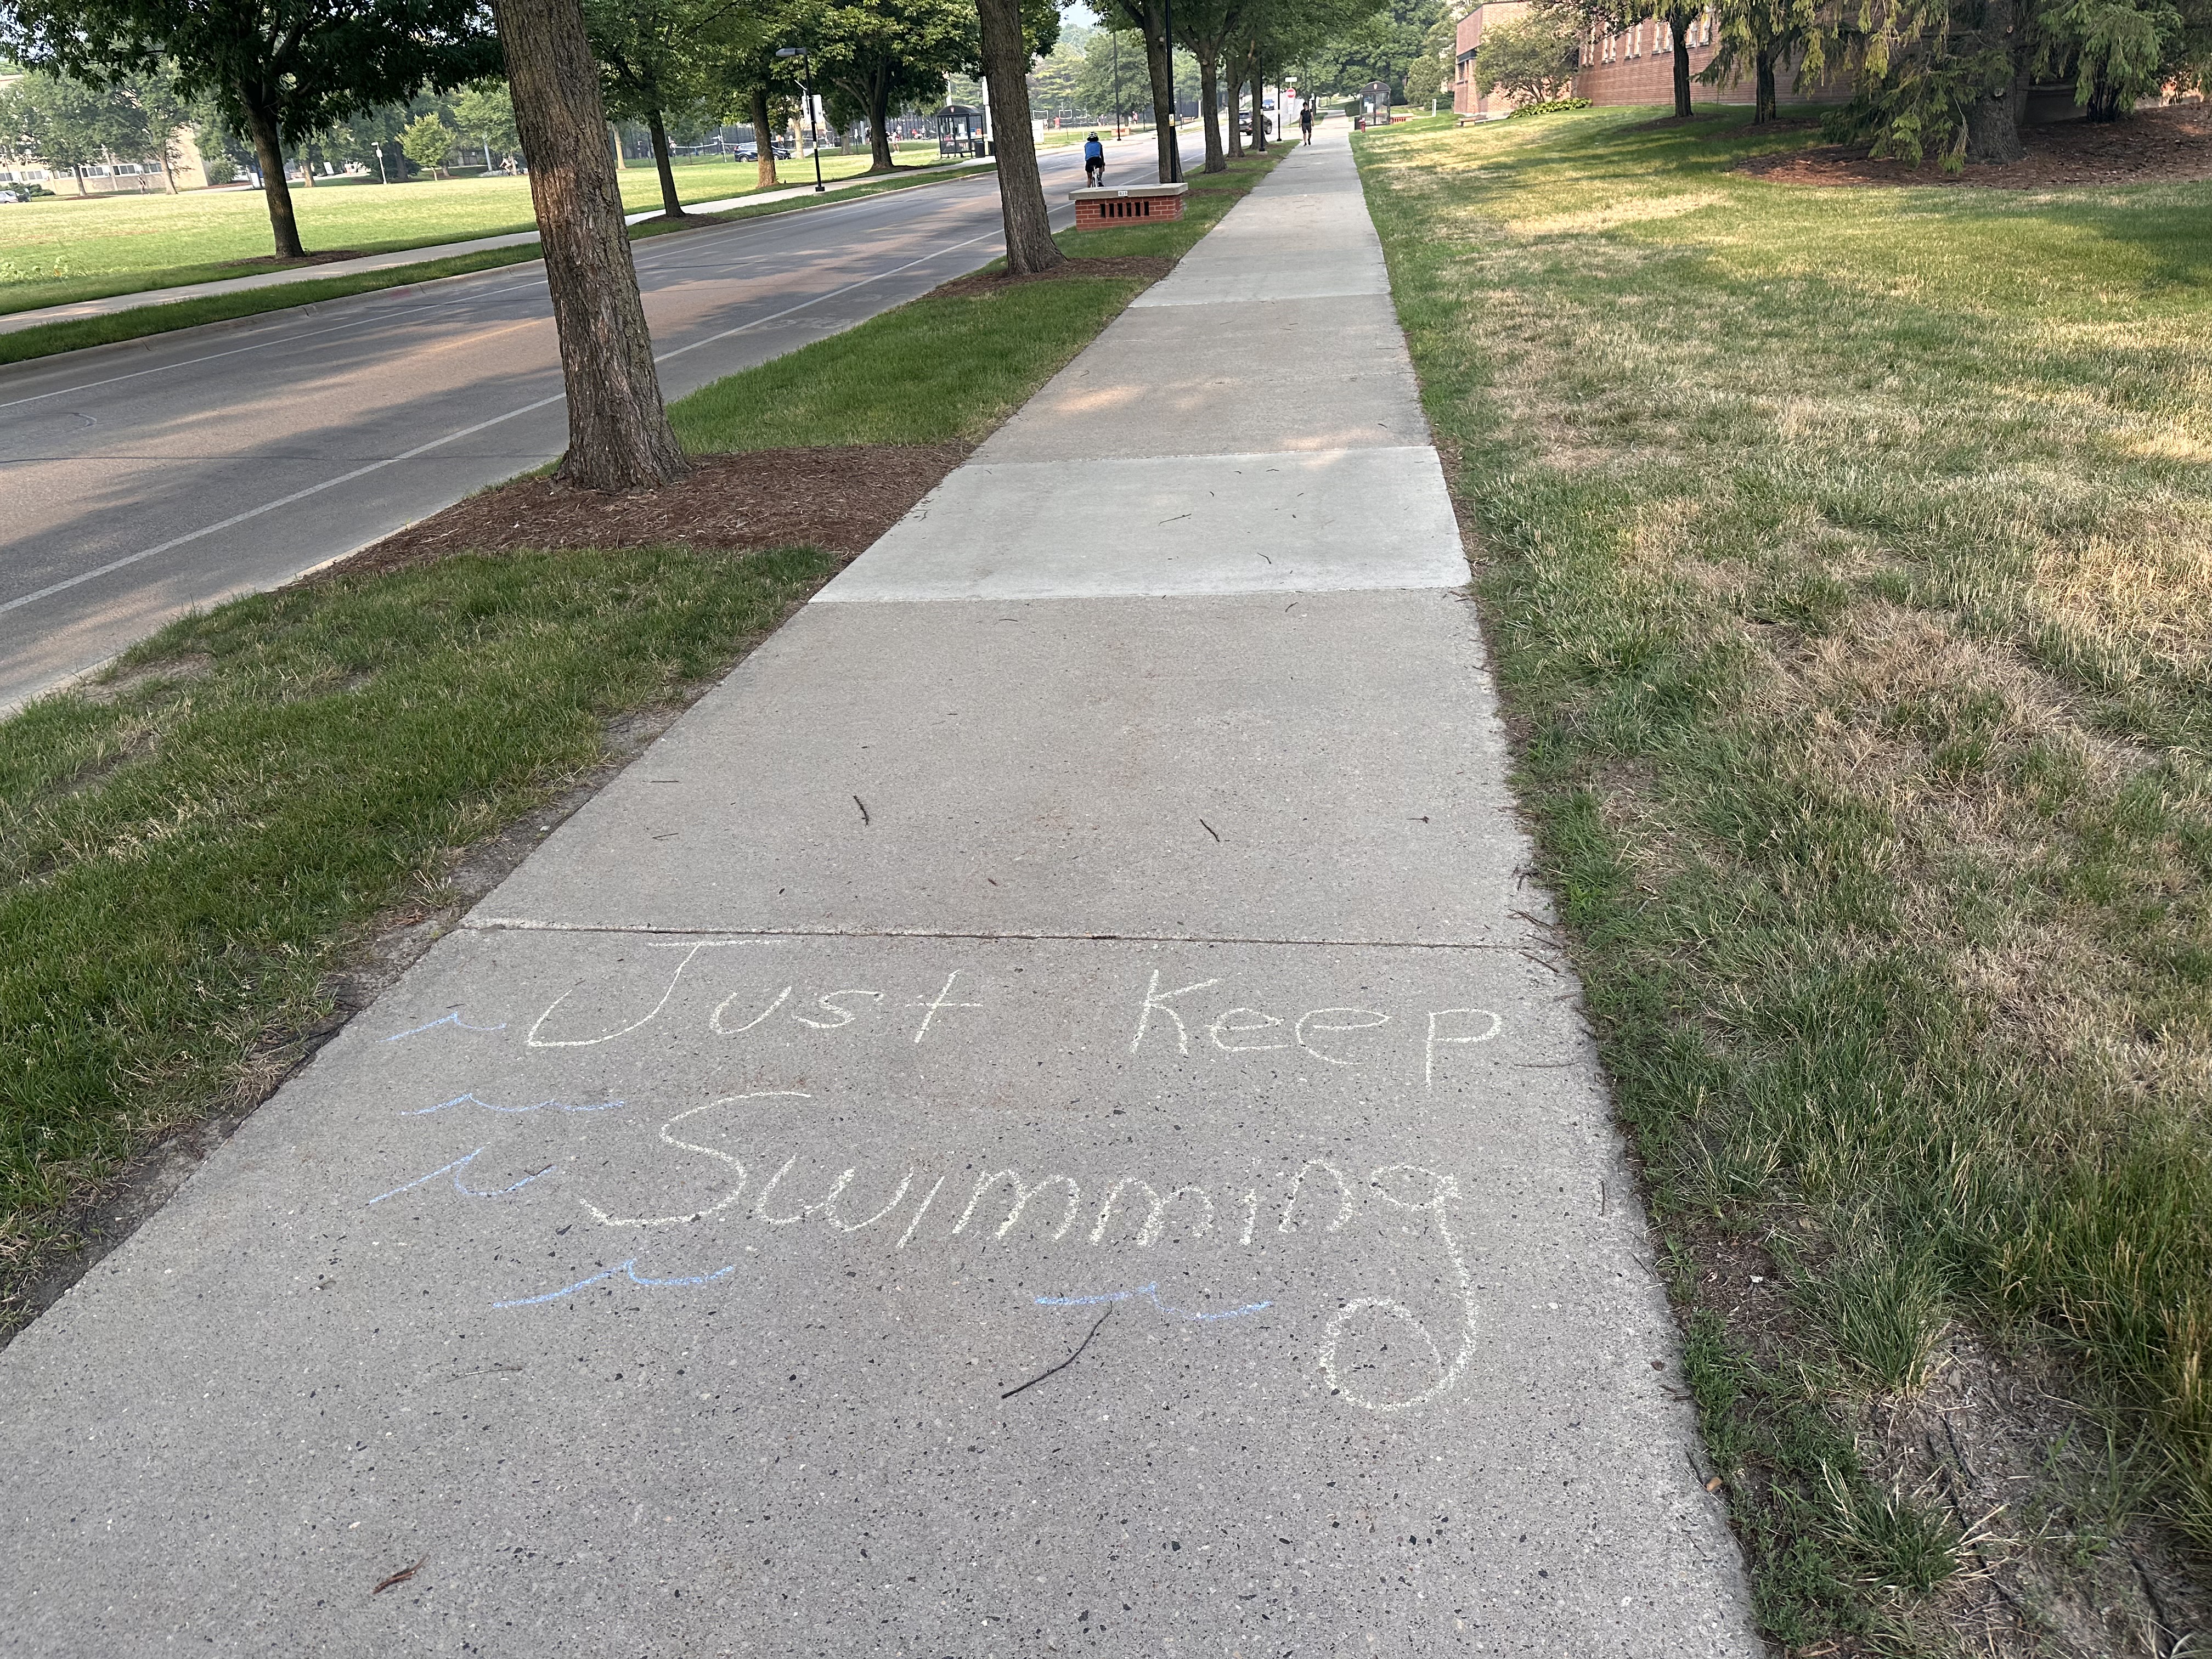 Just Keep
Swimming